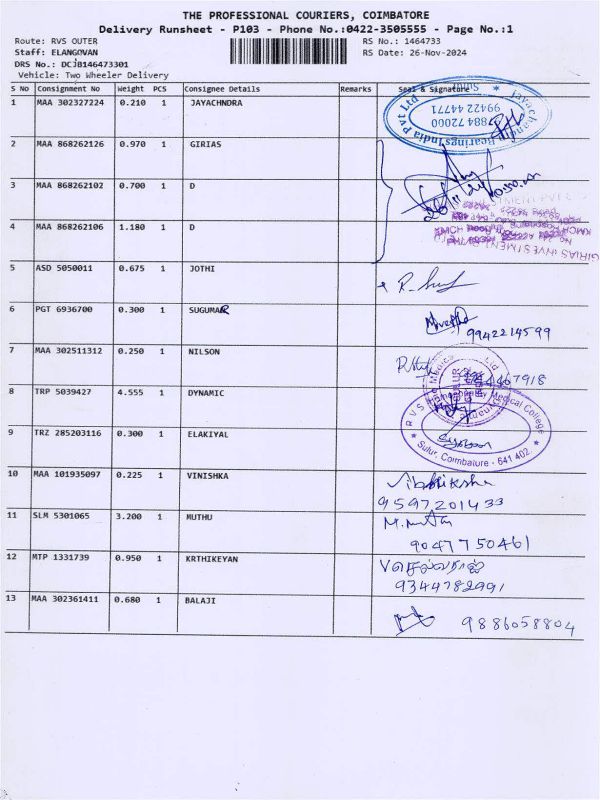 THE PROFESSIONAL COURIERS, COIMBATORE
Delivery Runsheet - P103 - Phone No.:0422-3505555 - Page No.:1
Route: RVS OUTER RS No.: 1464733
Staff: ELANGOVAN RS Date: 26-Nov-2024
DRS No.: DCJB146473301
Vehicle: Two Wheeler Delivery
S No Consignment No Weight PCS Consignee Details Remarks Seal & Signature
1 MAA 302327224 0.210 1 JAYACHNDRA
Jayachand Bearings India Pvt Ltd
Sulur
99422 44771
7884 72000
2 MAA 868262126 0.970 1 GIRIAS
3 MAA 868262102 0.700 1 D
4 MAA 868262106 1.180 1 D
GIRIAS INVESTMENT
5 ASD 5050011 0.675 1 JOTHI
6 PGT 6936700 0.300 1 SUGUMAR
9942214599
7 MAA 302511312 0.250 1 NILSON
8 TRP 5039427 4.555 1 DYNAMIC
RVS Medical College
9 TRZ 285203116 0.300 1 ELAKIYAL
Sulur, Coimbatore - 641 402
10 MAA 101935097 0.225 1 VINISHKA
9597201433
11 SLM 5301065 3.200 1 MUTHU M.muthu
9047750461
12 MTP 1331739 0.950 1 KRTHIKEYAN V செல்வராஜ்
9344782991
13 MAA 302361411 0.680 1 BALAJI 9886058804